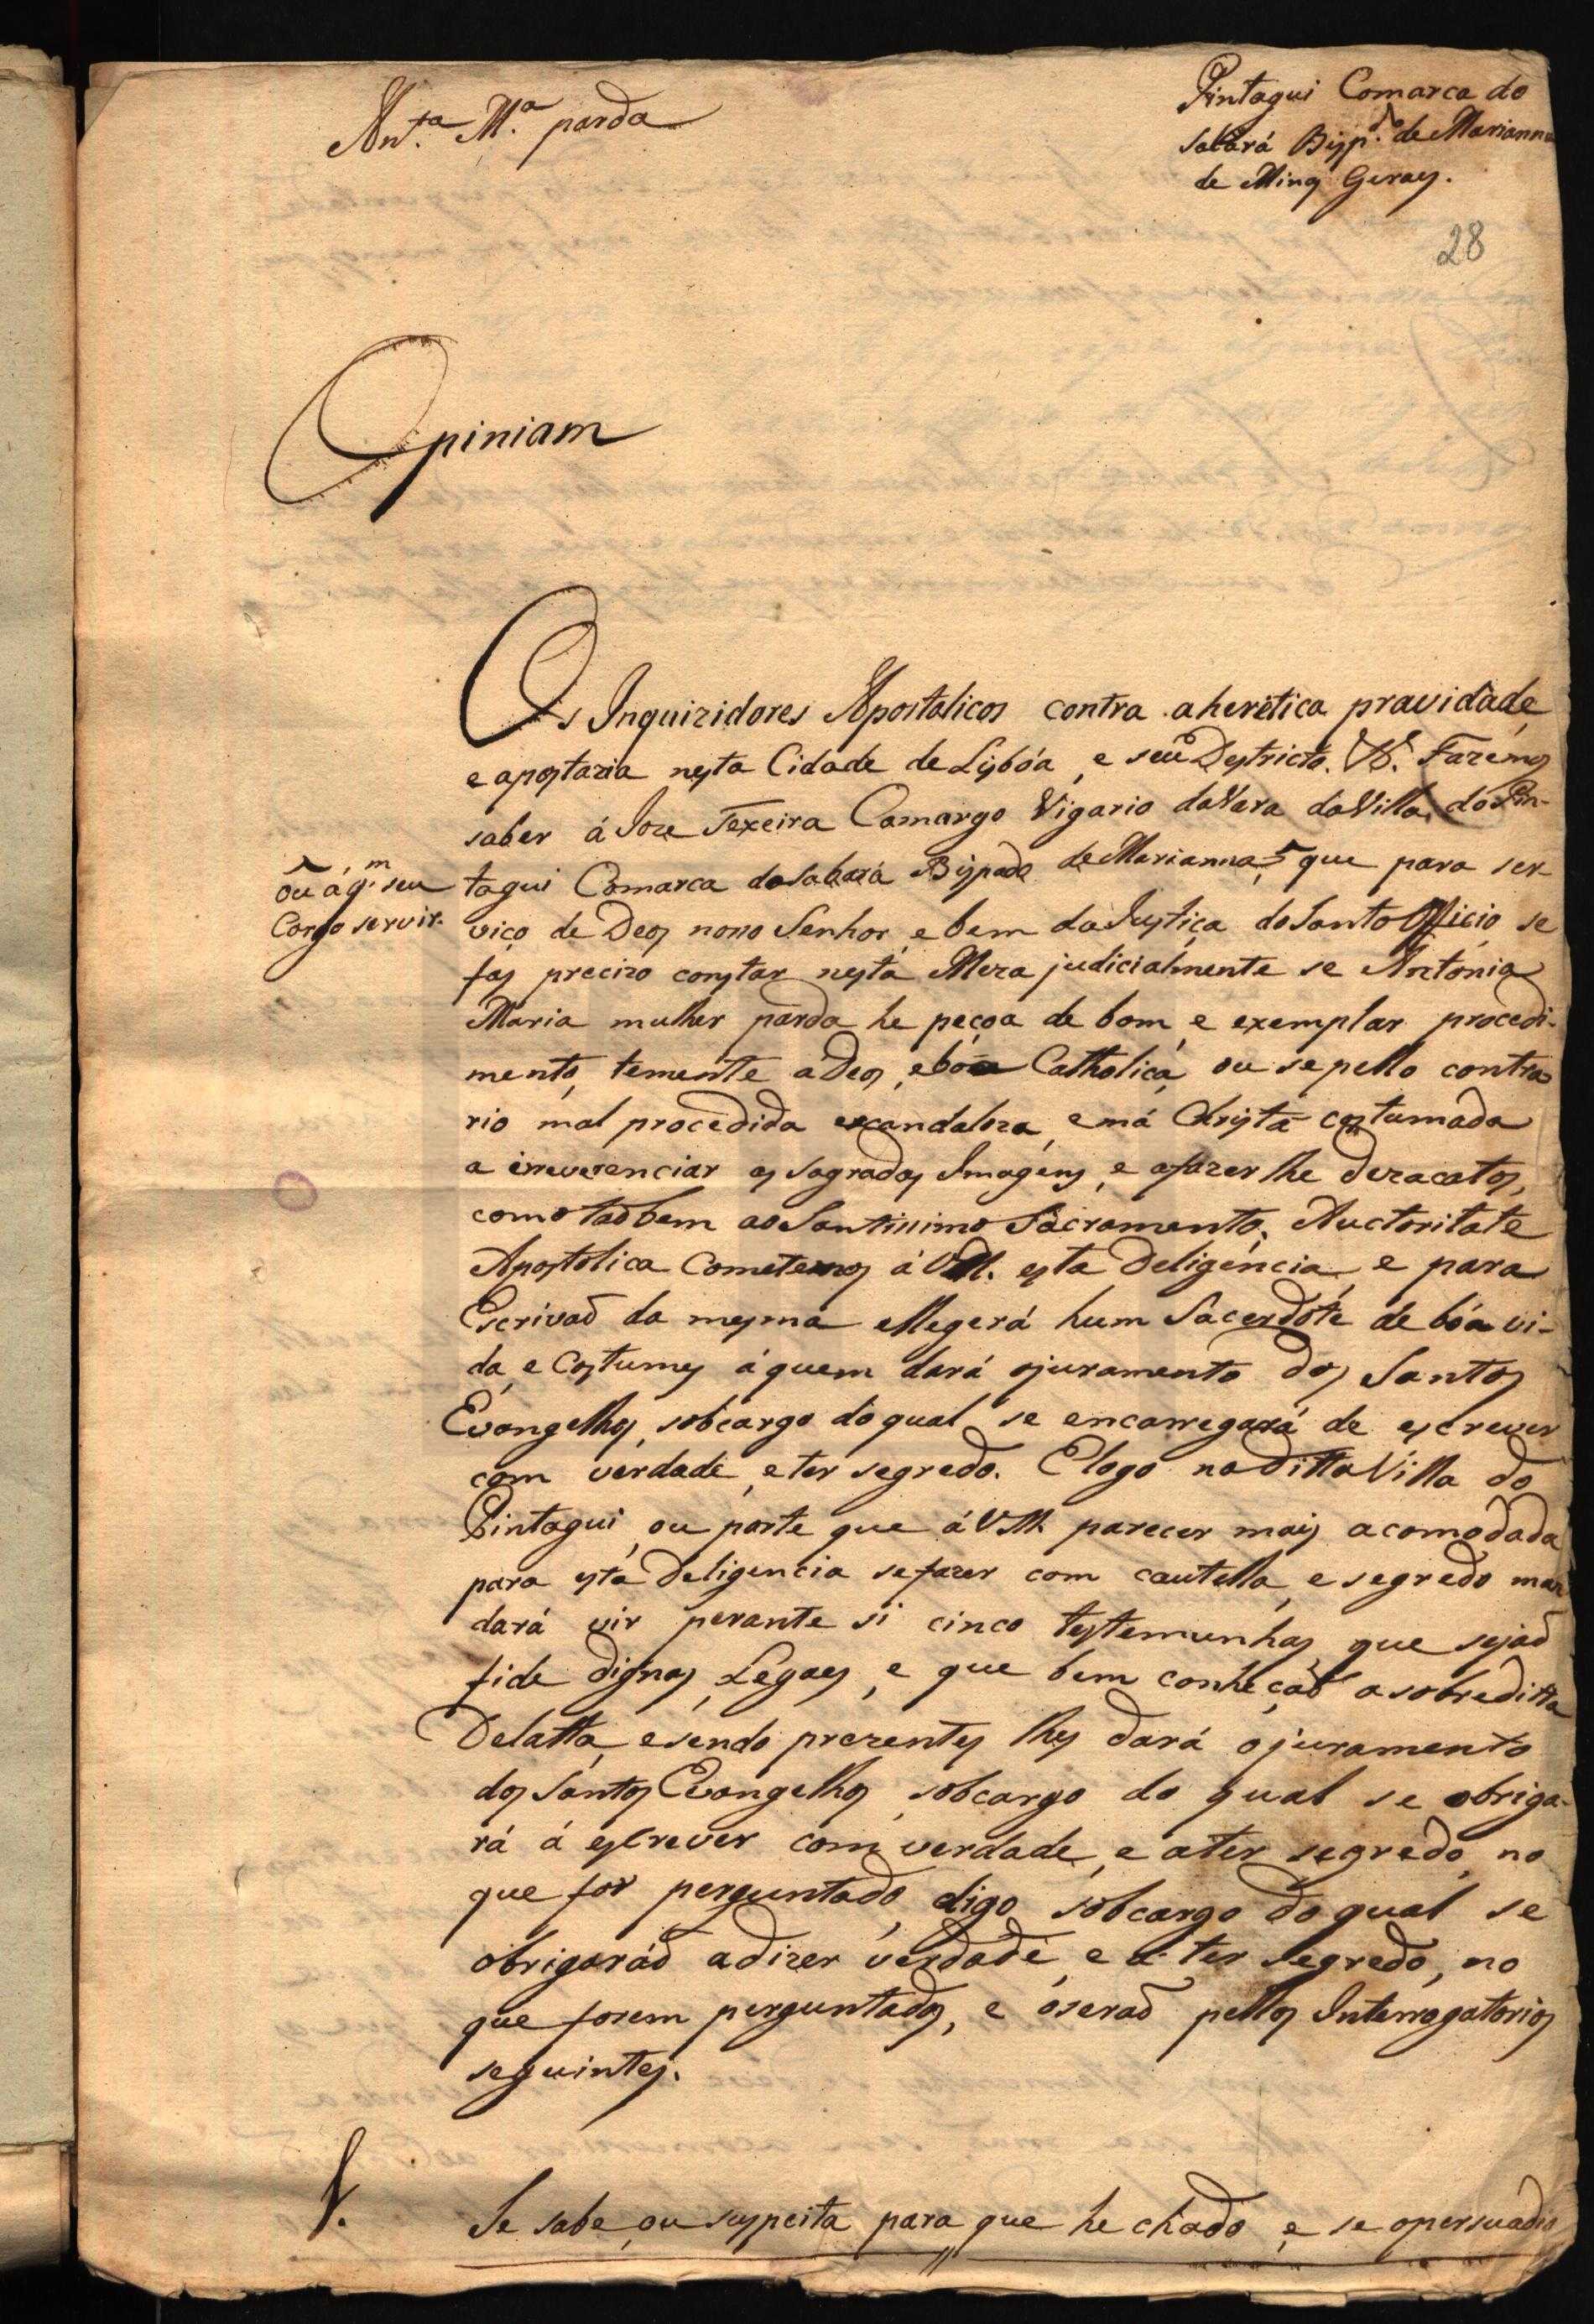 Ant.ª M.ª parda
Pintagui Comarca do
Sabará Bisp.do de Marianna
de Minas Geraes.
28
Opiniam
Os Inquizidores Apostolicos contra a heretica pravidade,
e apostazia nesta Cidade de Lisbóa, e seu Destricto. V.ª Fazemos
saber á Joze Texeira Camargo Vigario da Vara da Villa do Pin-
ou á q.m seu
Cargo servir.
tagui Comarca do Sabará Bispado de Marianna, que para ser-
viço de Deos nosso Senhor, e bem da Justiça do Santo Officio se
fas precizo constar nesta Meza judicialmente se Antonia
Maria mulher parda he peçoa de bom, e exemplar procedi-
mento, temente a Deos, e bóa Catholica, ou se pello contra-
rio mal procedida escandaloza, e má Christã costumada
a irreverenciar as sagradas Imagens, e a fazer lhe dezacatos,
como taõbem ao Santissimo Sacramento. Auctoritate
Apostolica Cometemos á VM. esta Deligencia, e para
Escrivaõ da mesma ellegerá hum Sacerdote de bóa vi-
da, e Costumes á quem dará o juramento dos Santos
Evangelhos, sob cargo do qual se encarregará de escrever
com verdade, e ter segredo. E logo na ditta Villa do
Pintagui, ou parte que á VM. parecer mais acomodada
para esta Deligencia se fazer com cautella, e segredo man
dará vir perante si cinco testemunhas, que sejaõ
fide dignas, Legaes, e que bem conheçaõ a sobreditta
Delatta, e sendo prezentes lhes dará o juramento
dos Santos Evangelhos, sob cargo do qual se obriga-
rá á escrever com verdade, e a ter segredo, no
que for perguntado, digo, sob cargo do qual se
obrigaráõ a dizer verdade, e a ter segredo, no
que forem perguntados, e o seraõ pellos Interrogatorios
seguintes.
1.
Se sabe, ou suspeita para que he chãdo, e se o persuadio